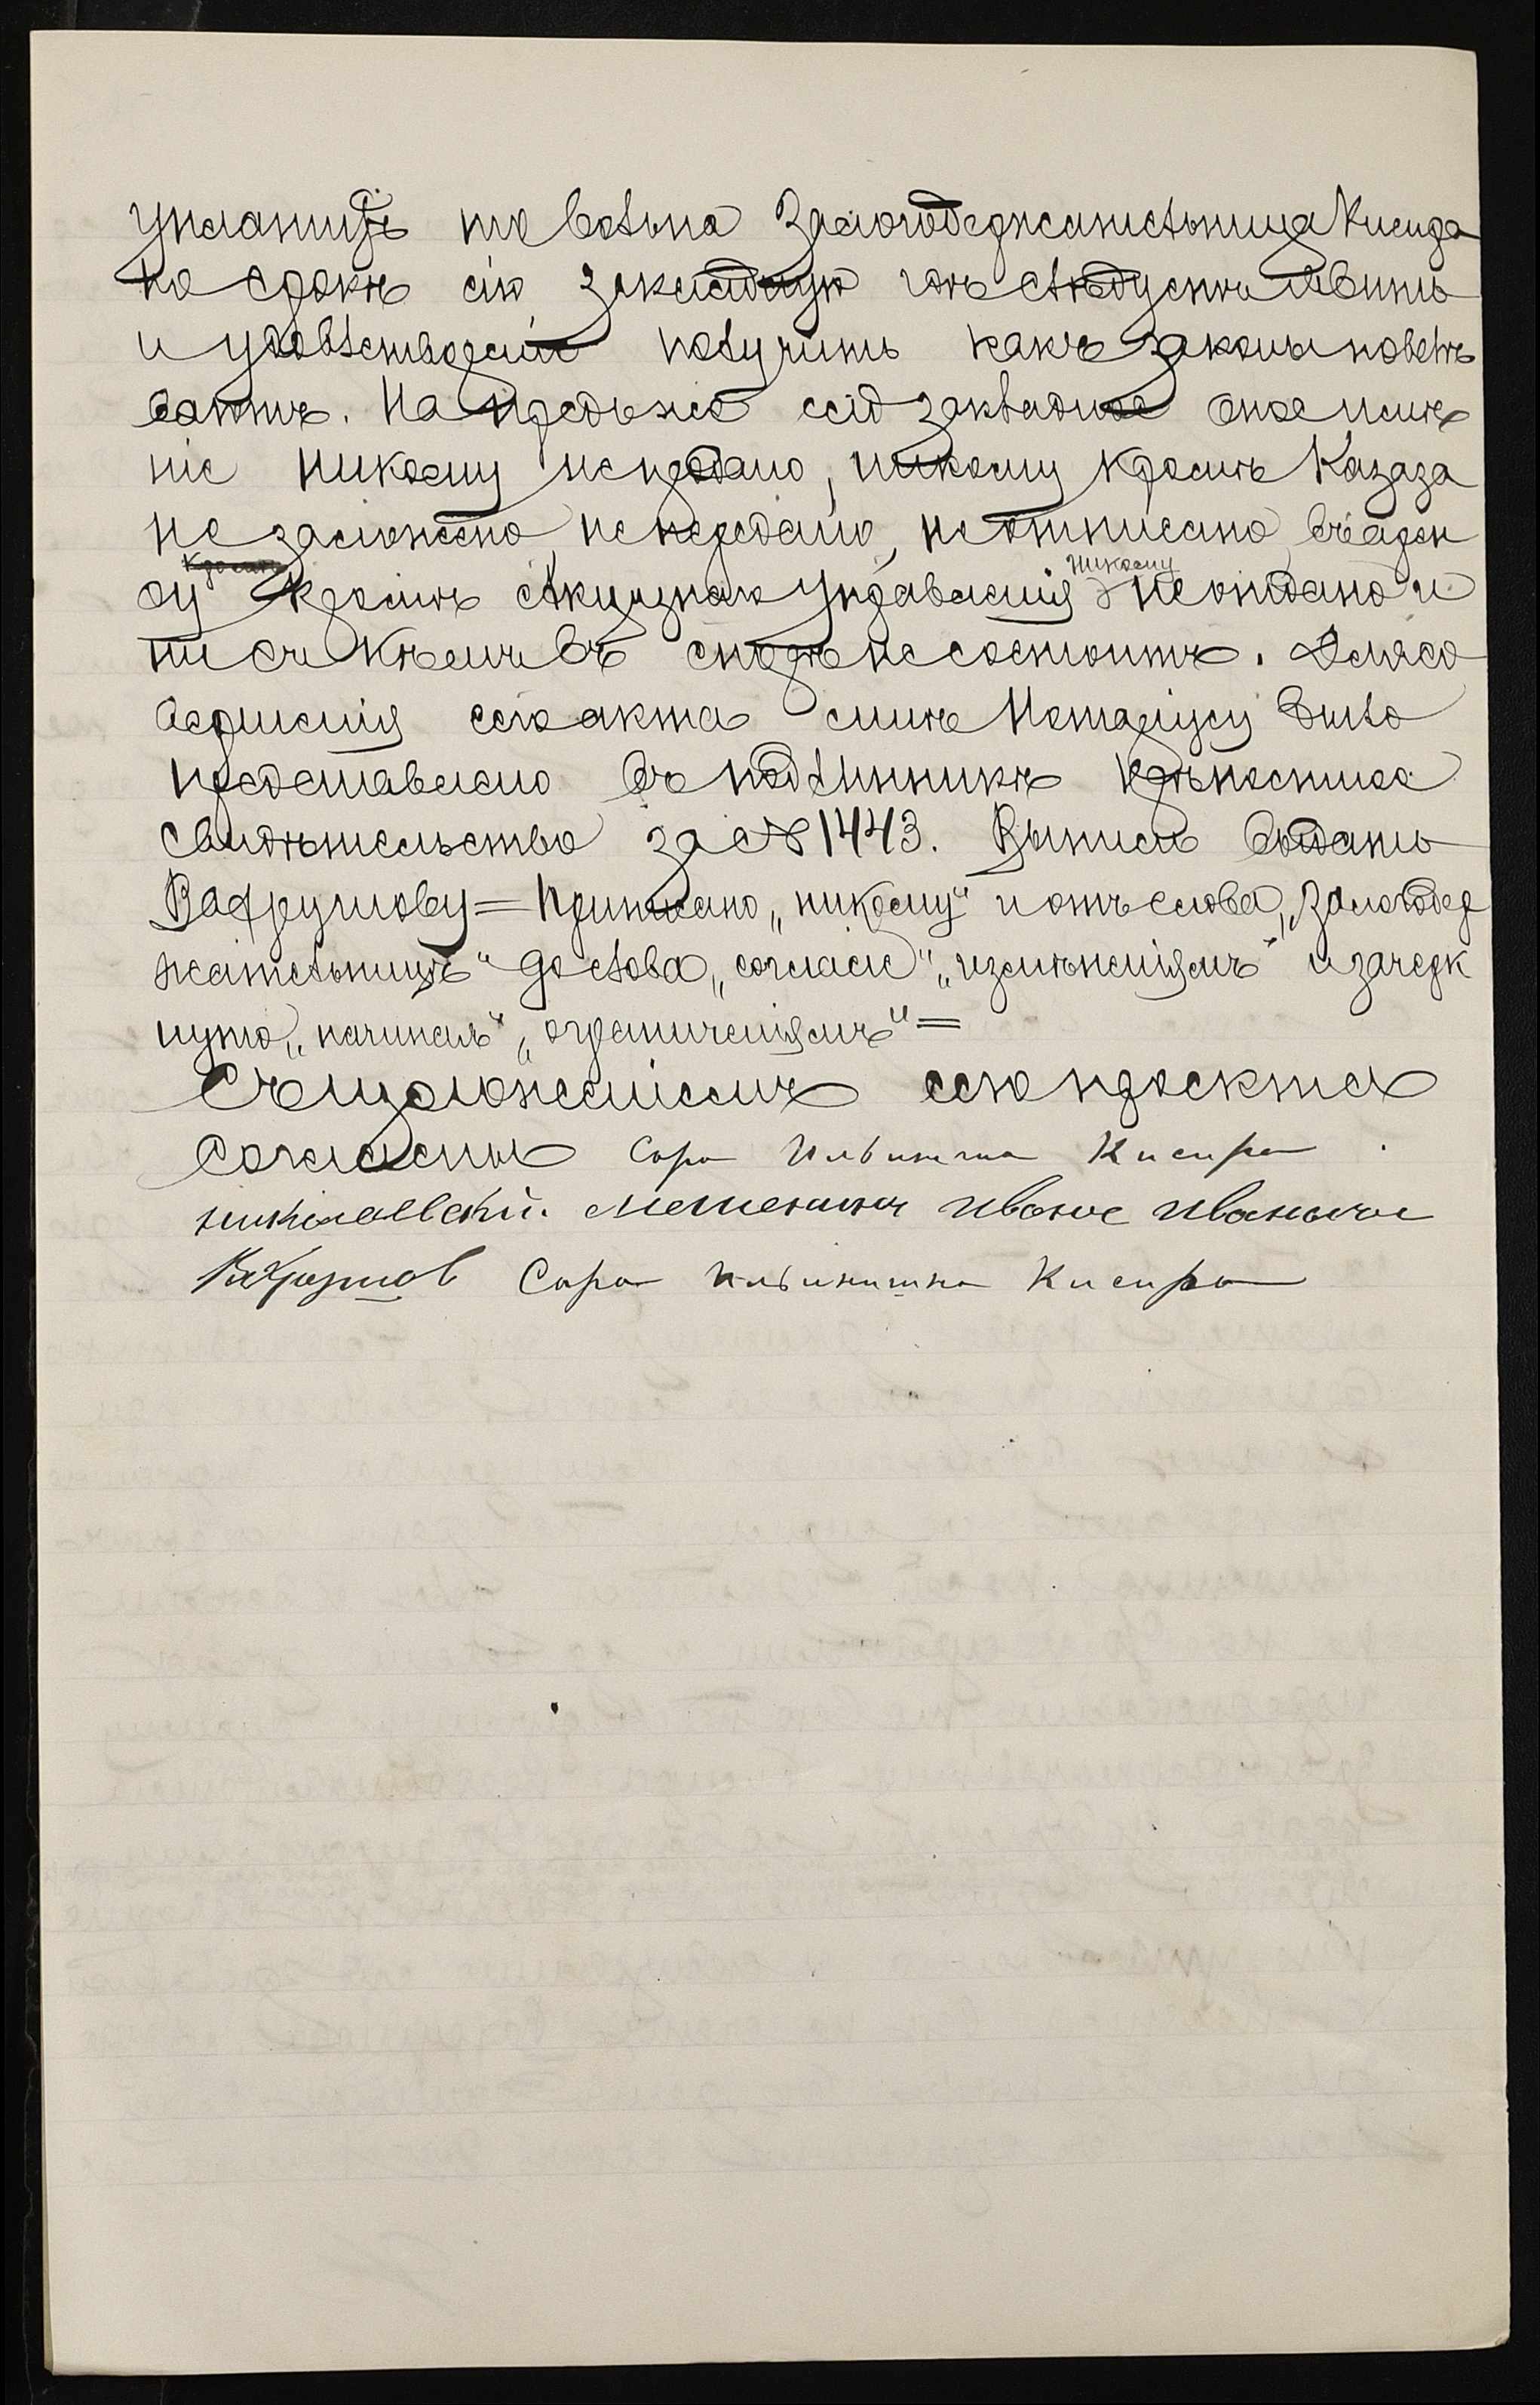 уплатитъ то вольна Залогодержательница Кисира
по срокѣ сію закладную гдѣ слѣдуетъ явить
и удовлетвореніе получить какъ законы повелѣ
ваютъ. Напредь же сей закладной оное имѣ
ніе никому непродано, никому кромѣ Казаза
не заложено, не передано, не отписано, въ арен
ду кромѣ Акцизнаго Управленія никому не отдано и
ни съ кѣмъ въ спорѣ не состоитъ. Для со
вершенія сего акта мнѣ Нотаріусу было
представлено въ подлинникѣ крѣпостное
свидѣтельство за № 1443. Выпись выдать
Вафрушову = Приписано „никому“ и отъ слова „Залогодер
жательницѣ“ до слова „согласіе“ „измѣненіямъ“ и зачерк
нуто „ начиная“ „ограниченіямъ“ =
Съ изложеніемъ сего проекта
согласны Сора Ильинична Кисира
николаевскій мешенинъ Иванъ Ивановъ
Вафрушов Сора Ильинишна Кисира